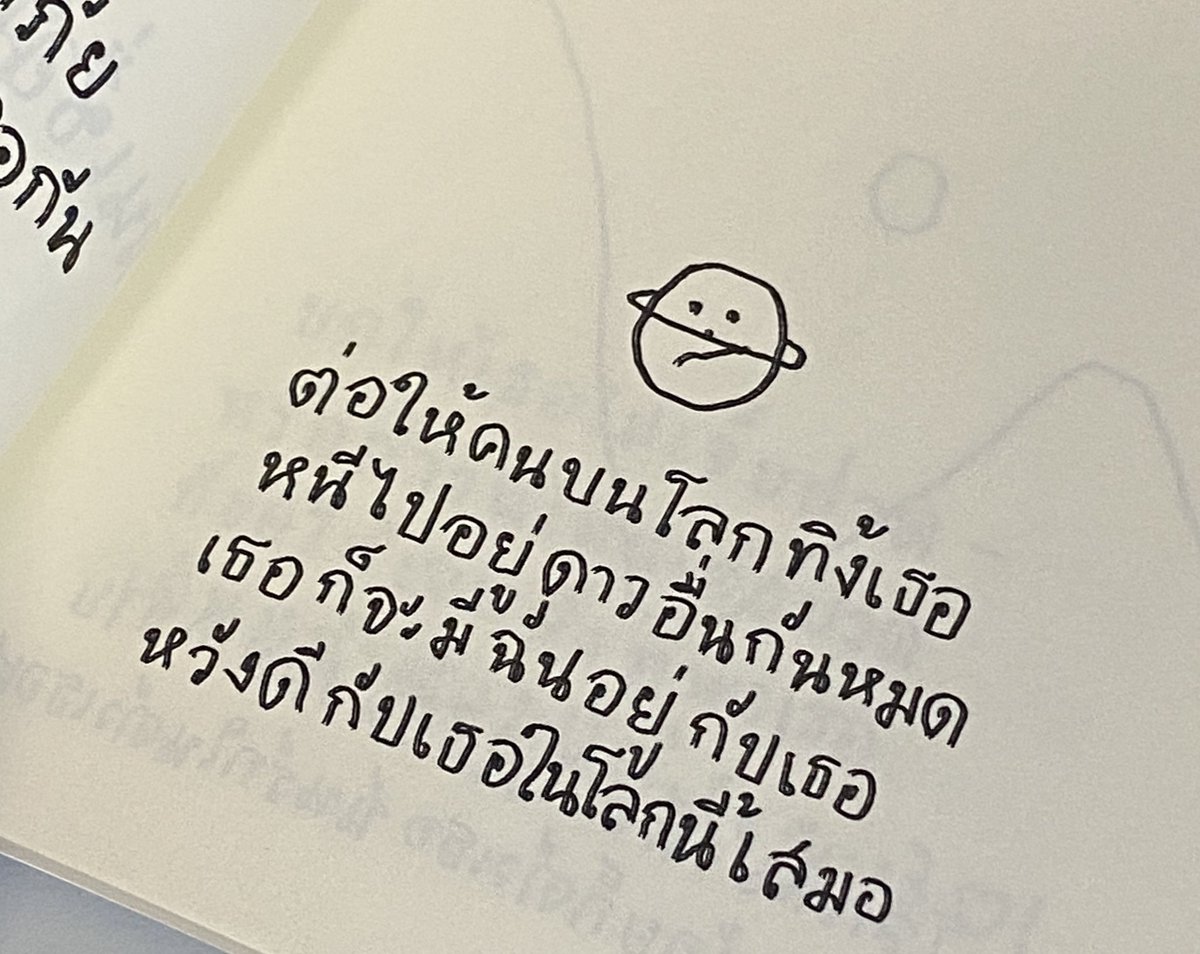 ภัย
กัน
ต่อให้คนบนโลกทิ้งเธอ
หนีไปอยู่ดาวอื่นกันหมด
เธอก็จะมีฉันอยู่กับเธอ
หวังดีกับเธอในโลกนี้เสมอ